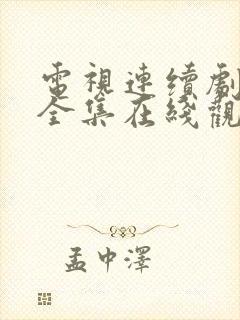 電視連續劇
全集在綫觀
孟中澤